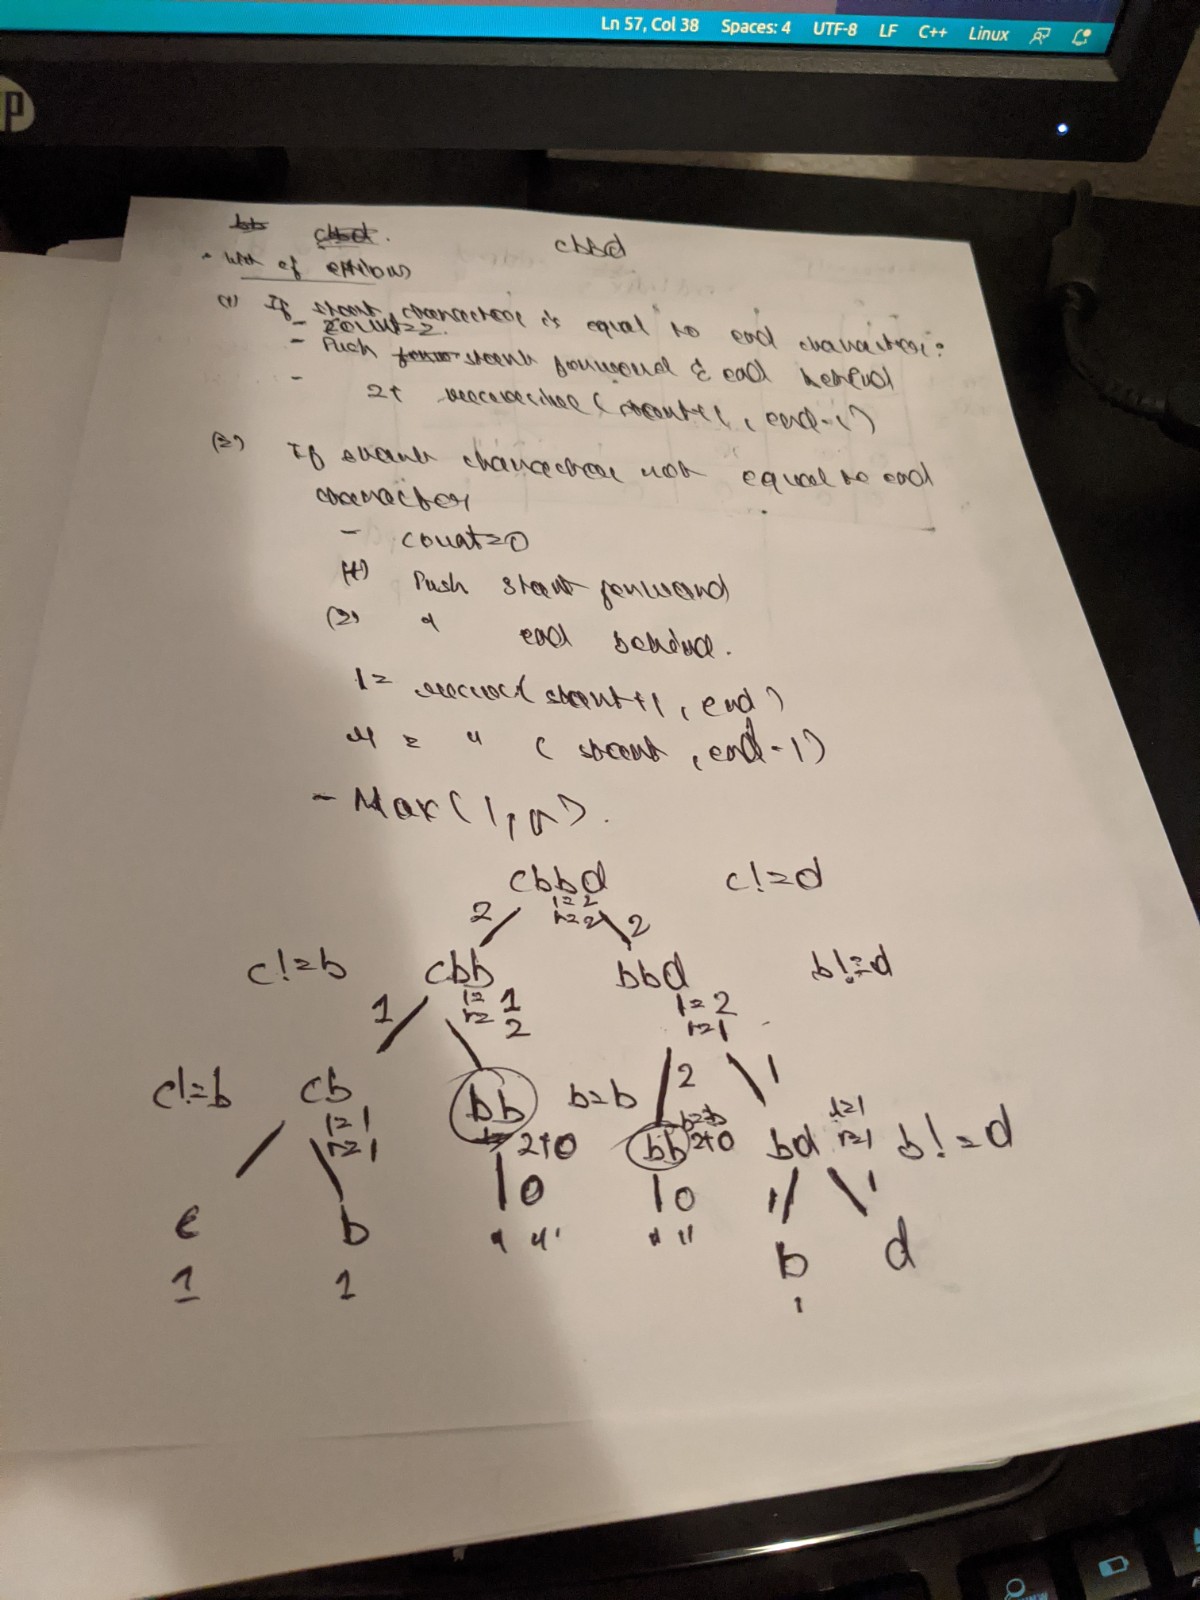 Ln 57, Col 38 Spaces: 4 UTF-8 LF C++ Linux
bb cbbd. cbbd
(1) If start character is equal to end character:
- count=2.
- Push start forward & end behind
- 2+ recursive(start+1, end-1)
(2) If start character not equal to end
character
- count=0
(1) Push start forward
(2) " end behind.
l = recur(start+1, end)
r = " (start, end-1)
- Max(l, r).
cbbd c!=d
l=2
2 r=2 2
c!=b cbb bbd b!=d
l=1 l=2
1 r=2 r=1
2 1
c!=b cb bb b=b b=b l=1
l=1 2+0 bb 2+0 bd r=1 b!=d
r=1
0 0 1 1
c b " " " " b d
1 1 1